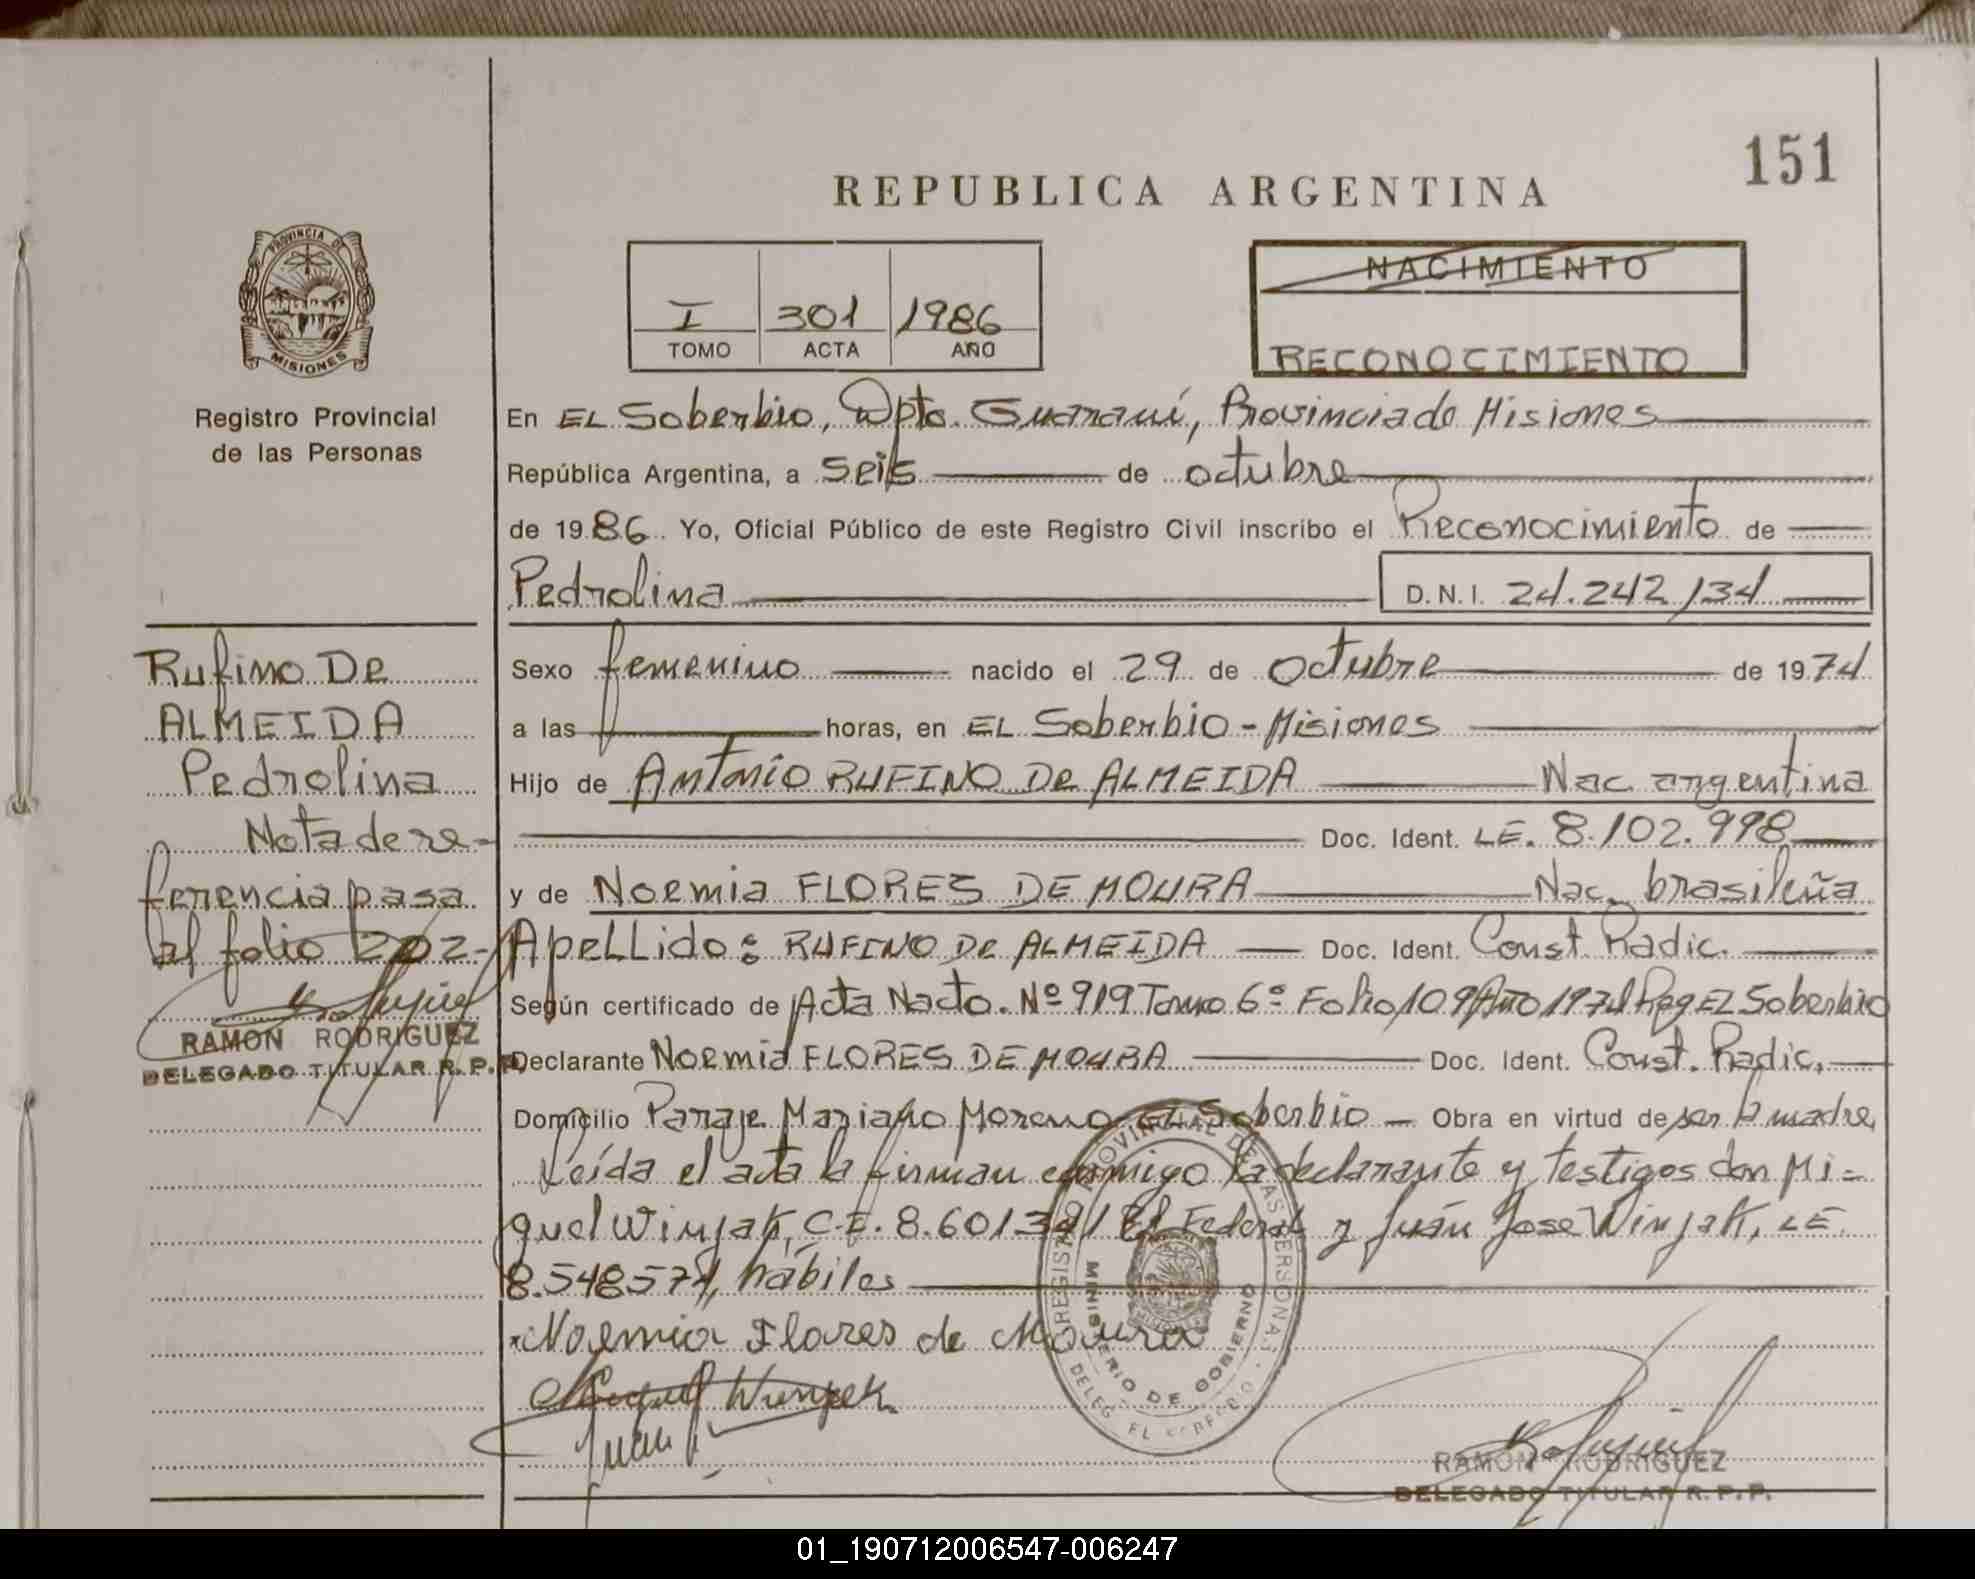 151
REPUBLICA ARGENTINA
PROVINCIA DE
MISIONES
Registro Provincial
de las Personas
I 301 1986
TOMO ACTA AÑO
NACIMIENTO
RECONOCIMIENTO
En EL Soberbio, Dpto. Guaraní, Provincia de Misiones
República Argentina, a seis de octubre
de 1986. Yo, Oficial Público de este Registro Civil inscribo el Reconocimiento de
Pedrolina D.N.I. 24.242,134
Sexo femenino nacido el 29 de Octubre de 1974
a las horas, en EL Soberbio - Misiones
Hijo de Antonio RUFINO De ALMEIDA Nac argentina
Doc. Ident. LE. 8.102.998
y de Noemia FLORES DE MOURA Nac. brasileña
Apellido: RUFINO De ALMEIDA Doc. Ident. Const. Radic.
Según certificado de Acta Nacto. Nº 919 Tomo 6º Folio 109 Año 1974 Reg EL Soberbio
Declarante Noemia FLORES DE MOURA Doc. Ident. Const. Radic.
Domicilio Paraje Mariano Moreno EL Soberbio - Obra en virtud de ser la madre,
Leída el acta la firman conmigo la declarante y testigos don Mi-
guel Winjak, C.I. 8.601.341 Federal y Juán Jose Winjak, LE.
8.548574, hábiles
Noemia Flores de Moura
Miguel Winjek
Juan
RAMON RODRIGUEZ
DELEGADO TITULAR R.P.P.
Rufino De
ALMEIDA
Pedrolina
Nota de re-
ferencia pasa
al folio 202-
RAMON RODRIGUEZ
DELEGADO TITULAR R.P.P.
REGISTRO PROVINCIAL DE LAS PERSONAS
MINISTERIO DE GOBIERNO
DELEG. EL SOBERBIO
01_190712006547-006247